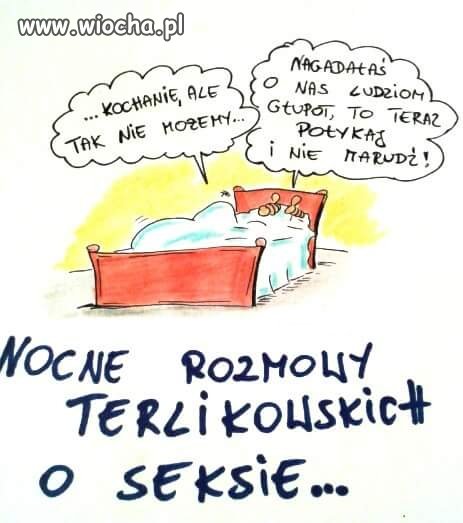 www.wiocha.pl
...KOCHANIE, ALE
TAK NIE MOŻEMY...
NAGADAŁAŚ
O NAS LUDZIOM
GŁUPOT, TO TERAZ
POŁYKAJ
I NIE MARUDŹ!
NOCNE ROZMOWY
TERLIKOWSKICH
O SEKSIE...